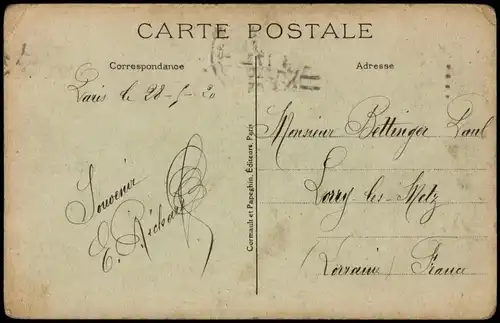 CARTE POSTALE
Correspondance
Adresse
Paris le 28-5-20
Souvenir
E. Richard
Cormault et Papeghin, Éditeurs, Paris
Monsieur Bettinger Paul
Lorry-les-Metz
(Lorraine) France